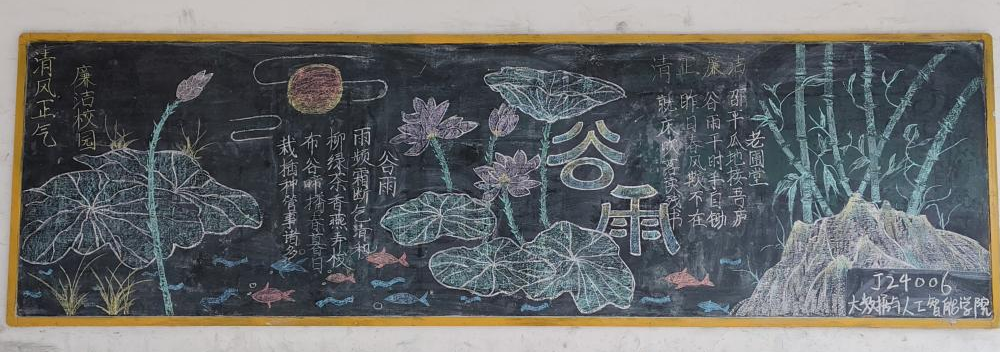 清风正气
廉洁校园
谷雨
雨频霜断气清和
柳绿茶香燕弄梭
布谷啼播春暮日
栽插种管事诸多。
谷雨
清正廉洁
老圃堂
邵平瓜地接吾庐
谷雨干时手自锄
昨日春风欺不在
就床吹落读残书
J24006
大数据与人工智能学院